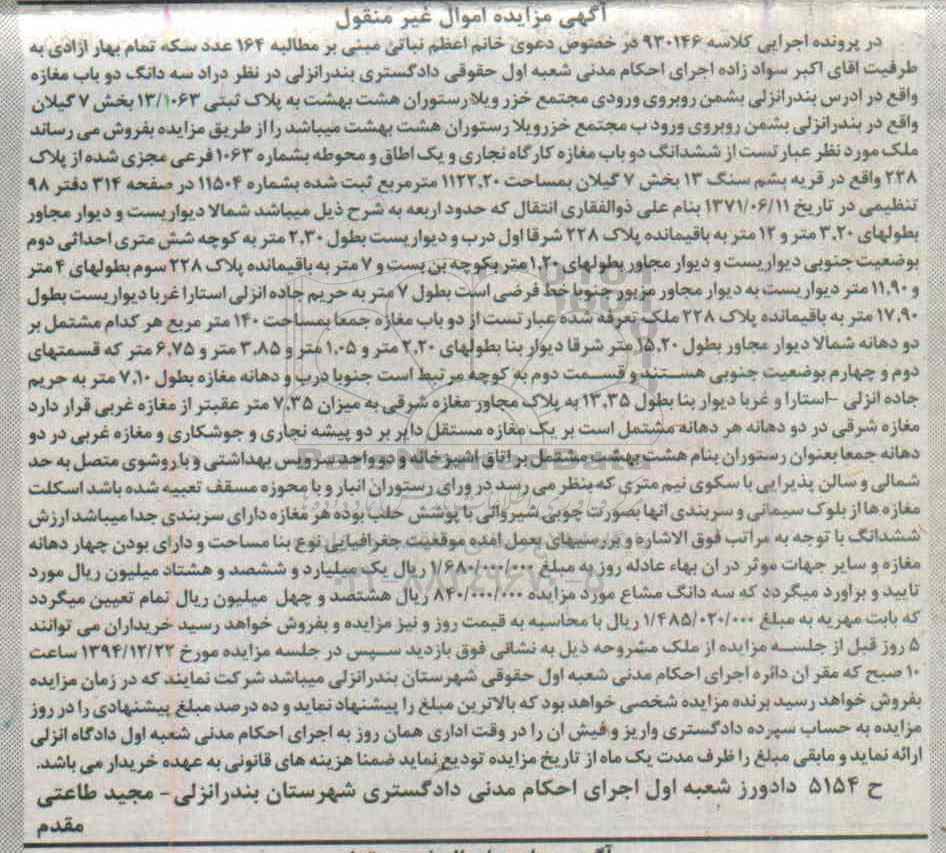 آگهی مزایده اموال غیر منقول
در پرونده اجرایی کلاسه ۹۳۰۱۴۶ در خصوص دعوی خانم اعظم نباتی مبنی بر مطالبه ۱۶۴ عدد سکه تمام بهار ازادی به
طرفیت اقای اکبر سواد زاده اجرای احکام مدنی شعبه اول حقوقی دادگستری بندرانزلی در نظر دراد سه دانگ دو باب مغازه
واقع در ادرس بندرانزلی بشمن روبروی ورودی مجتمع خزر ویلا رستوران هشت بهشت به پلاک ثبتی ۱۳/۱۰۶۳ بخش ۷ گیلان
واقع در بندرانزلی بشمن روبروی ورود ب مجتمع خزرویلا رستوران هشت بهشت میباشد را از طریق مزایده بفروش می رساند
ملک مورد نظر عبارتست از ششدانگ دو باب مغازه کارگاه نجاری و یک اطاق و محوطه بشماره ۱۰۶۳ فرعی مجزی شده از پلاک
۲۲۸ واقع در قریه بشم سنگ ۱۳ بخش ۷ گیلان بمساحت ۱۱۲۲٫۲۰ مترمربع ثبت شده بشماره ۱۱۵۰۴ در صفحه ۳۱۴ دفتر ۹۸
تنظیمی در تاریخ ۱۳۷۱/۰۶/۱۱ بنام علی ذوالفقاری انتقال که حدود اربعه به شرح ذیل میباشد شمالا دیواریست و دیوار مجاور
بطولهای ۳٫۲۰ متر و ۱۲ متر به باقیمانده پلاک ۲۲۸ شرقا اول درب و دیواریست بطول ۲٫۳۰ متر به کوچه شش متری احداثی دوم
بوضعیت جنوبی دیواریست و دیوار مجاور بطولهای ۱٫۲۰ متر بکوچه بن بست و ۷ متر به باقیمانده پلاک ۲۲۸ سوم بطولهای ۴ متر
و ۱۱٫۹۰ متر دیواریست به دیوار مجاور مزبور جنوبا خط فرضی است بطول ۷ متر به حریم جاده انزلی استارا غربا دیواریست بطول
۱۷٫۹۰ متر به باقیمانده پلاک ۲۲۸ ملک تعرفه شده عبارتست از دو باب مغازه جمعا بمساحت ۱۴۰ متر مربع هر کدام مشتمل بر
دو دهانه شمالا دیوار مجاور بطول ۱۵٫۲۰ متر شرقا دیوار بنا بطولهای ۲٫۲۰ متر و ۱٫۰۵ متر و ۳٫۸۵ متر و ۶٫۷۵ متر که قسمتهای
دوم و چهارم بوضعیت جنوبی هستند و قسمت دوم به کوچه مرتبط است جنوبا درب و دهانه مغازه بطول ۷٫۱۰ متر به حریم
جاده انزلی -استارا و غربا دیوار بنا بطول ۱۳٫۳۵ به پلاک مجاور مغازه شرقی به میزان ۷٫۳۵ متر عقبتر از مغازه غربی قرار دارد
مغازه شرقی در دو دهانه هر دهانه مشتمل است بر یک مغازه مستقل دایر بر دو پیشه نجاری و جوشکاری و مغازه غربی در دو
دهانه جمعا بعنوان رستوران بنام هشت بهشت مشتمل بر اتاق اشپزخانه و دو واحد سرویس بهداشتی و با روشوی متصل به حد
شمالی و سالن پذیرایی با سکوی نیم متری که بنظر می رسد در ورای رستوران انبار و با محوزه مسقف تعبیه شده باشد اسکلت
مغازه ها از بلوک سیمانی و سربندی انها بصورت چوبی شیروانی با پوشش حلب بوده هر مغازه دارای سربندی جدا میباشد ارزش
ششدانگ با توجه به مراتب فوق الاشاره و بررسیهای بعمل امده موقعیت جغرافیایی نوع بنا مساحت و دارای بودن چهار دهانه
مغازه و سایر جهات موثر در ان بهاء عادله روز به مبلغ ۱/۶۸۰/۰۰۰/۰۰۰ ریال یک میلیارد و ششصد و هشتاد میلیون ریال مورد
تایید و براورد میگردد که سه دانگ مشاع مورد مزایده ۸۴۰/۰۰۰/۰۰۰ ریال هشتصد و چهل میلیون ریال تمام تعیین میگردد
که بابت مهریه به مبلغ ۱/۴۸۵/۰۲۰/۰۰۰ ریال با محاسبه به قیمت روز و نیز مزایده و بفروش خواهد رسید خریداران می توانند
۵ روز قبل از جلسه مزایده از ملک مشروحه ذیل به نشانی فوق بازدید سپس در جلسه مزایده مورخ ۱۳۹۴/۱۲/۲۲ ساعت
۱۰ صبح که مقر ان دائره اجرای احکام مدنی شعبه اول حقوقی شهرستان بندرانزلی میباشد شرکت نمایند که در زمان مزایده
بفروش خواهد رسید برنده مزایده شخصی خواهد بود که بالاترین مبلغ را پیشنهاد نماید و ده درصد مبلغ پیشنهادی را در روز
مزایده به حساب سپرده دادگستری واریز و فیش ان را در وقت اداری همان روز به اجرای احکام مدنی شعبه اول دادگاه انزلی
ارائه نماید و مابقی مبلغ را ظرف مدت یک ماه از تاریخ مزایده تودیع نماید ضمنا هزینه های قانونی به عهده خریدار می باشد.
ح ۵۱۵۴ دادورز شعبه اول اجرای احکام مدنی دادگستری شهرستان بندرانزلی - مجید طاعتی
مقدم